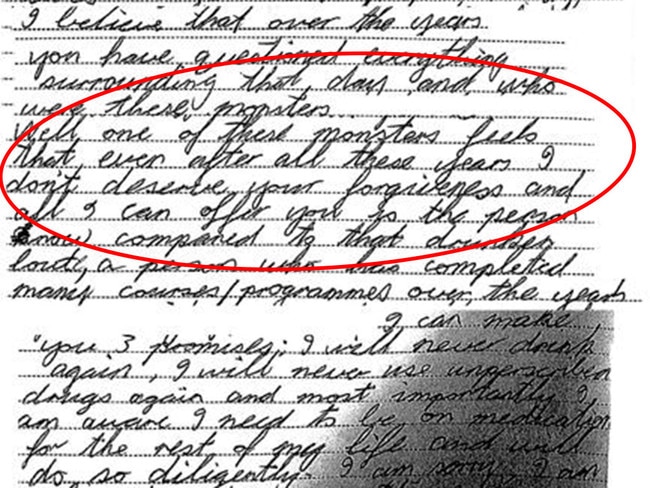 I believe that over the years
you have questioned everything
surrounding that day and who
were these monsters...
Well one of these monsters feels
that even after all these years I
don't deserve your forgiveness and
all I can offer you is the person
now compared to that drunken
lout, a person who has completed
many courses/programmes over the years
I can make
"you 3 promises; I will never drink
again, I will never use
drugs again and most importantly I
am aware I need to be on medication
for the rest of my life and will
do so diligently. I am sorry I am